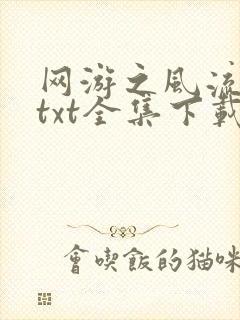 网游之风流
txt全集下载
會喫飯的猫咪